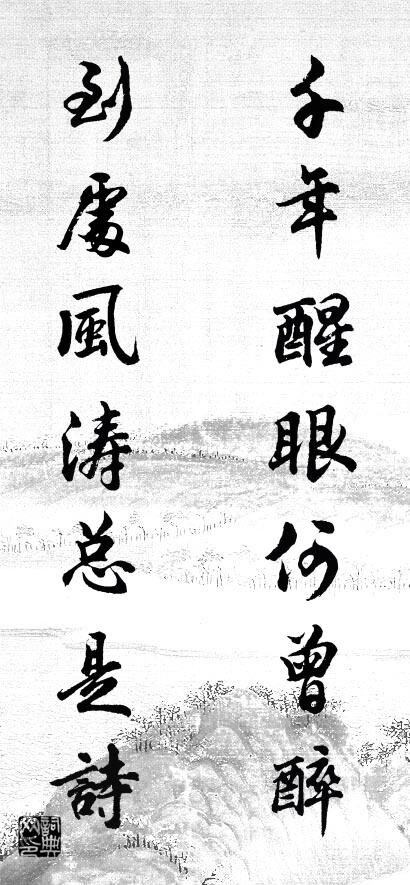 千年醒眼何曾醉
到處風涛总是詩